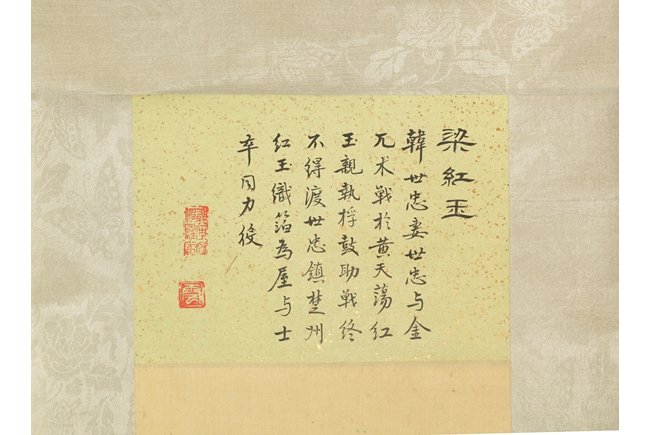 梁紅玉
韓世忠妻世忠与金
兀术戰於黃天蕩紅
玉親執桴鼓助戰終
不得渡世忠鎮楚州
紅玉織箔為屋与士
卒同力役